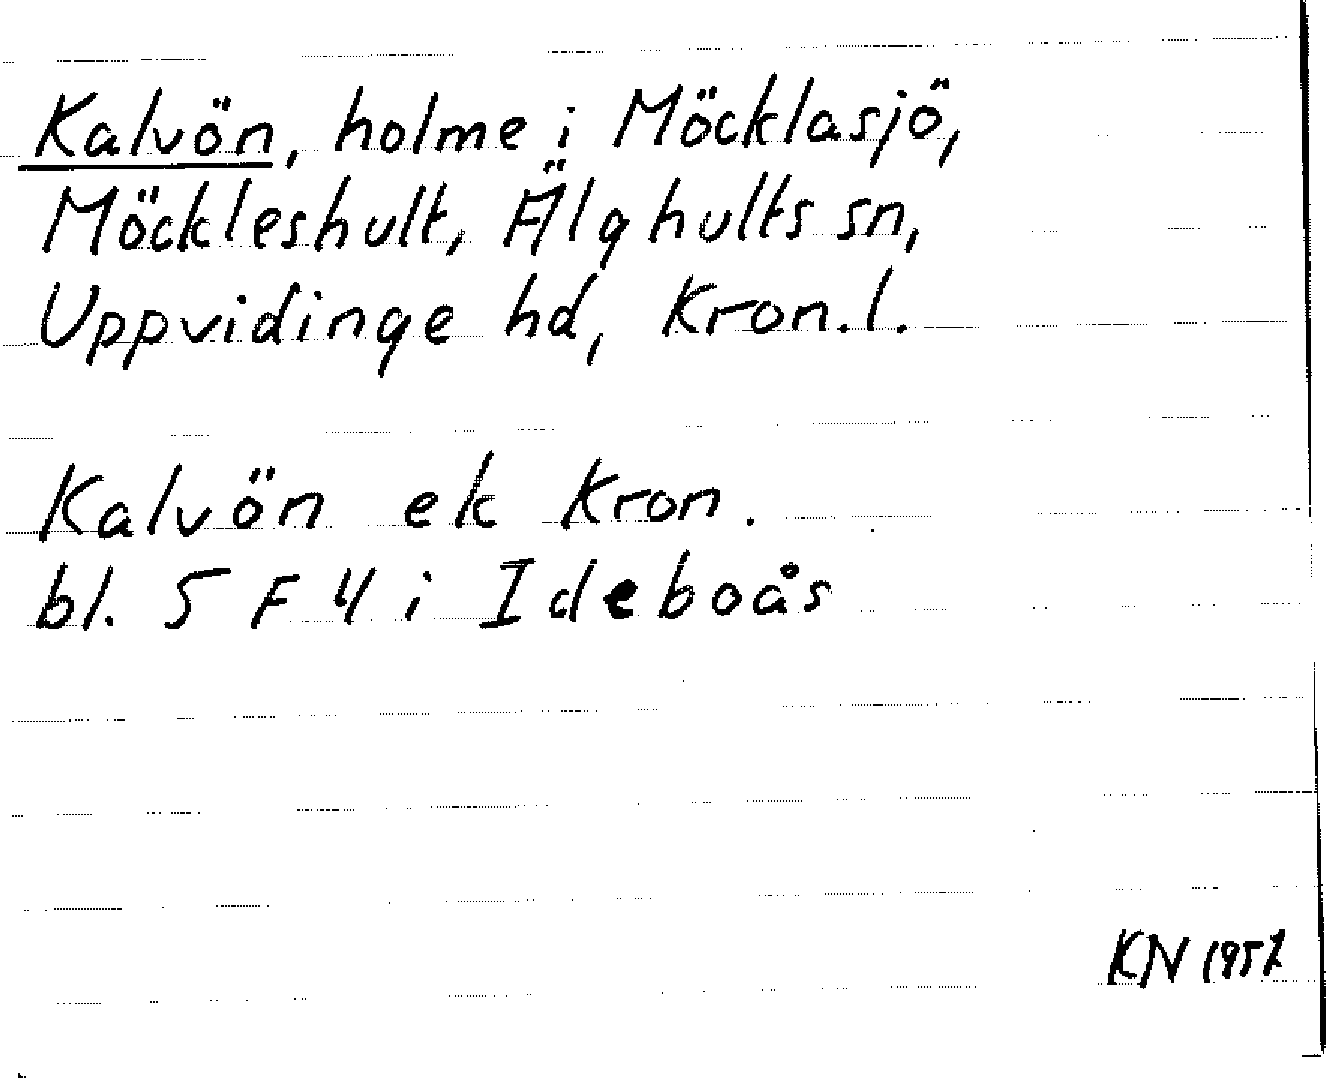 Kalvön, holme i Möcklasjö,
Möckleshult, Älghults sn,
Uppvidinge hd, Kron.l.
Kalvön ek Kron.
bl. 5 F 4 i Ideboås
KN 1952